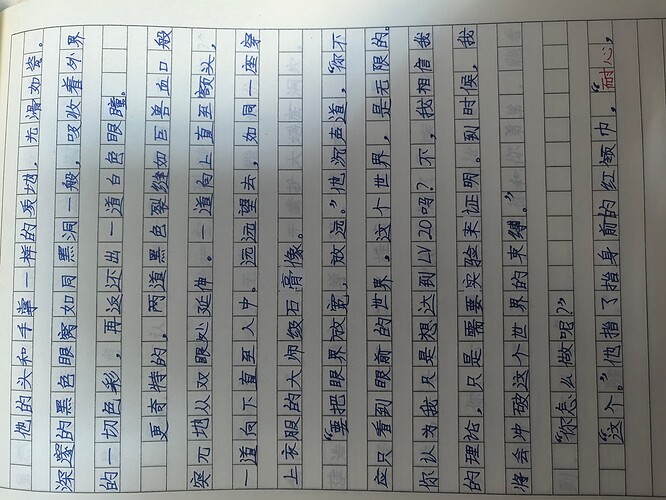 他的头和手掌一样的质地，光滑如瓷。
深邃的黑色眼窝如同黑洞一般，吸收着外界
的一切色彩，再返还出一道白色眼瞳。
更奇特的，两道黑色裂缝如巨兽血口般
突兀地从双眼处延伸。一道向上直至额头，
一道向下直至人中。远远望去，如同一座穿
上衣服的大师级石膏像。
“要把眼界放宽，放远。”他沉声道，“你不
应只看到眼前的世界，这个世界，是无限的。
你以为我只是想达到LV20吗？不，我相信我
的理论，只是需要实验来证明。到时候，我
将会冲破这个世界的束缚。”
“你怎么做呢？”
“这个。”他指了指身前的红领巾，“耐心，